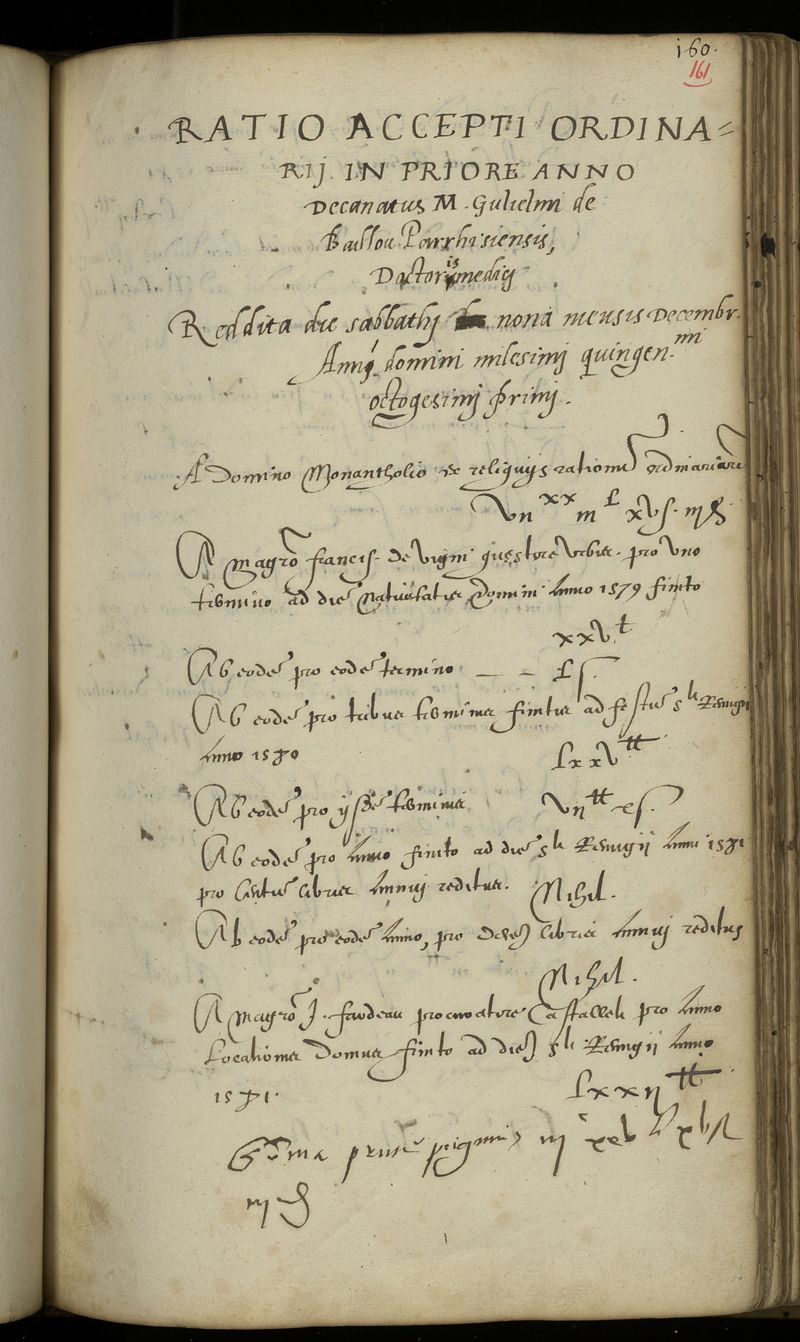 160.
161
RATIO ACCEPTI ORDINA=
RIJ IN PRIORE ANNO
Decanatus M. Gulielmi de
Baillou Parrhisiensis,
Doctoris medicj
Reddita die sabbathj nona mensis Decembr.
Annj domini milesimj quingen.mi
octogesimj primj.
A Domino Monantholio de reliquijs rationum ordinariarum
A magro Francis. de Vigni quęstore Urbis. pro uno
termino ad diem Nativitatis Domini Anno 1579 finito
xxv ℔
Ab eodem pro eodem termino — —
Ab eodem pro tribus terminis finitis ad festum sti Remigii
Anno 1580
lxxv ℔
Ab eodem pro ijsdem terminis
Ab eodem pro Anno finito ad diem sti Remigii Anni 1581
pro Centum libris Annuj reditus. Nihil.
Ab eodem pro eodem Anno, pro decem libris Annuj reditus
Nihil.
A magro J. Fardeau procuratore Castelleti pro Anno
Locationis Domus finito ad diem sti Remigii Anno
1581. lxxij ℔
Summa prime pagine
iij d